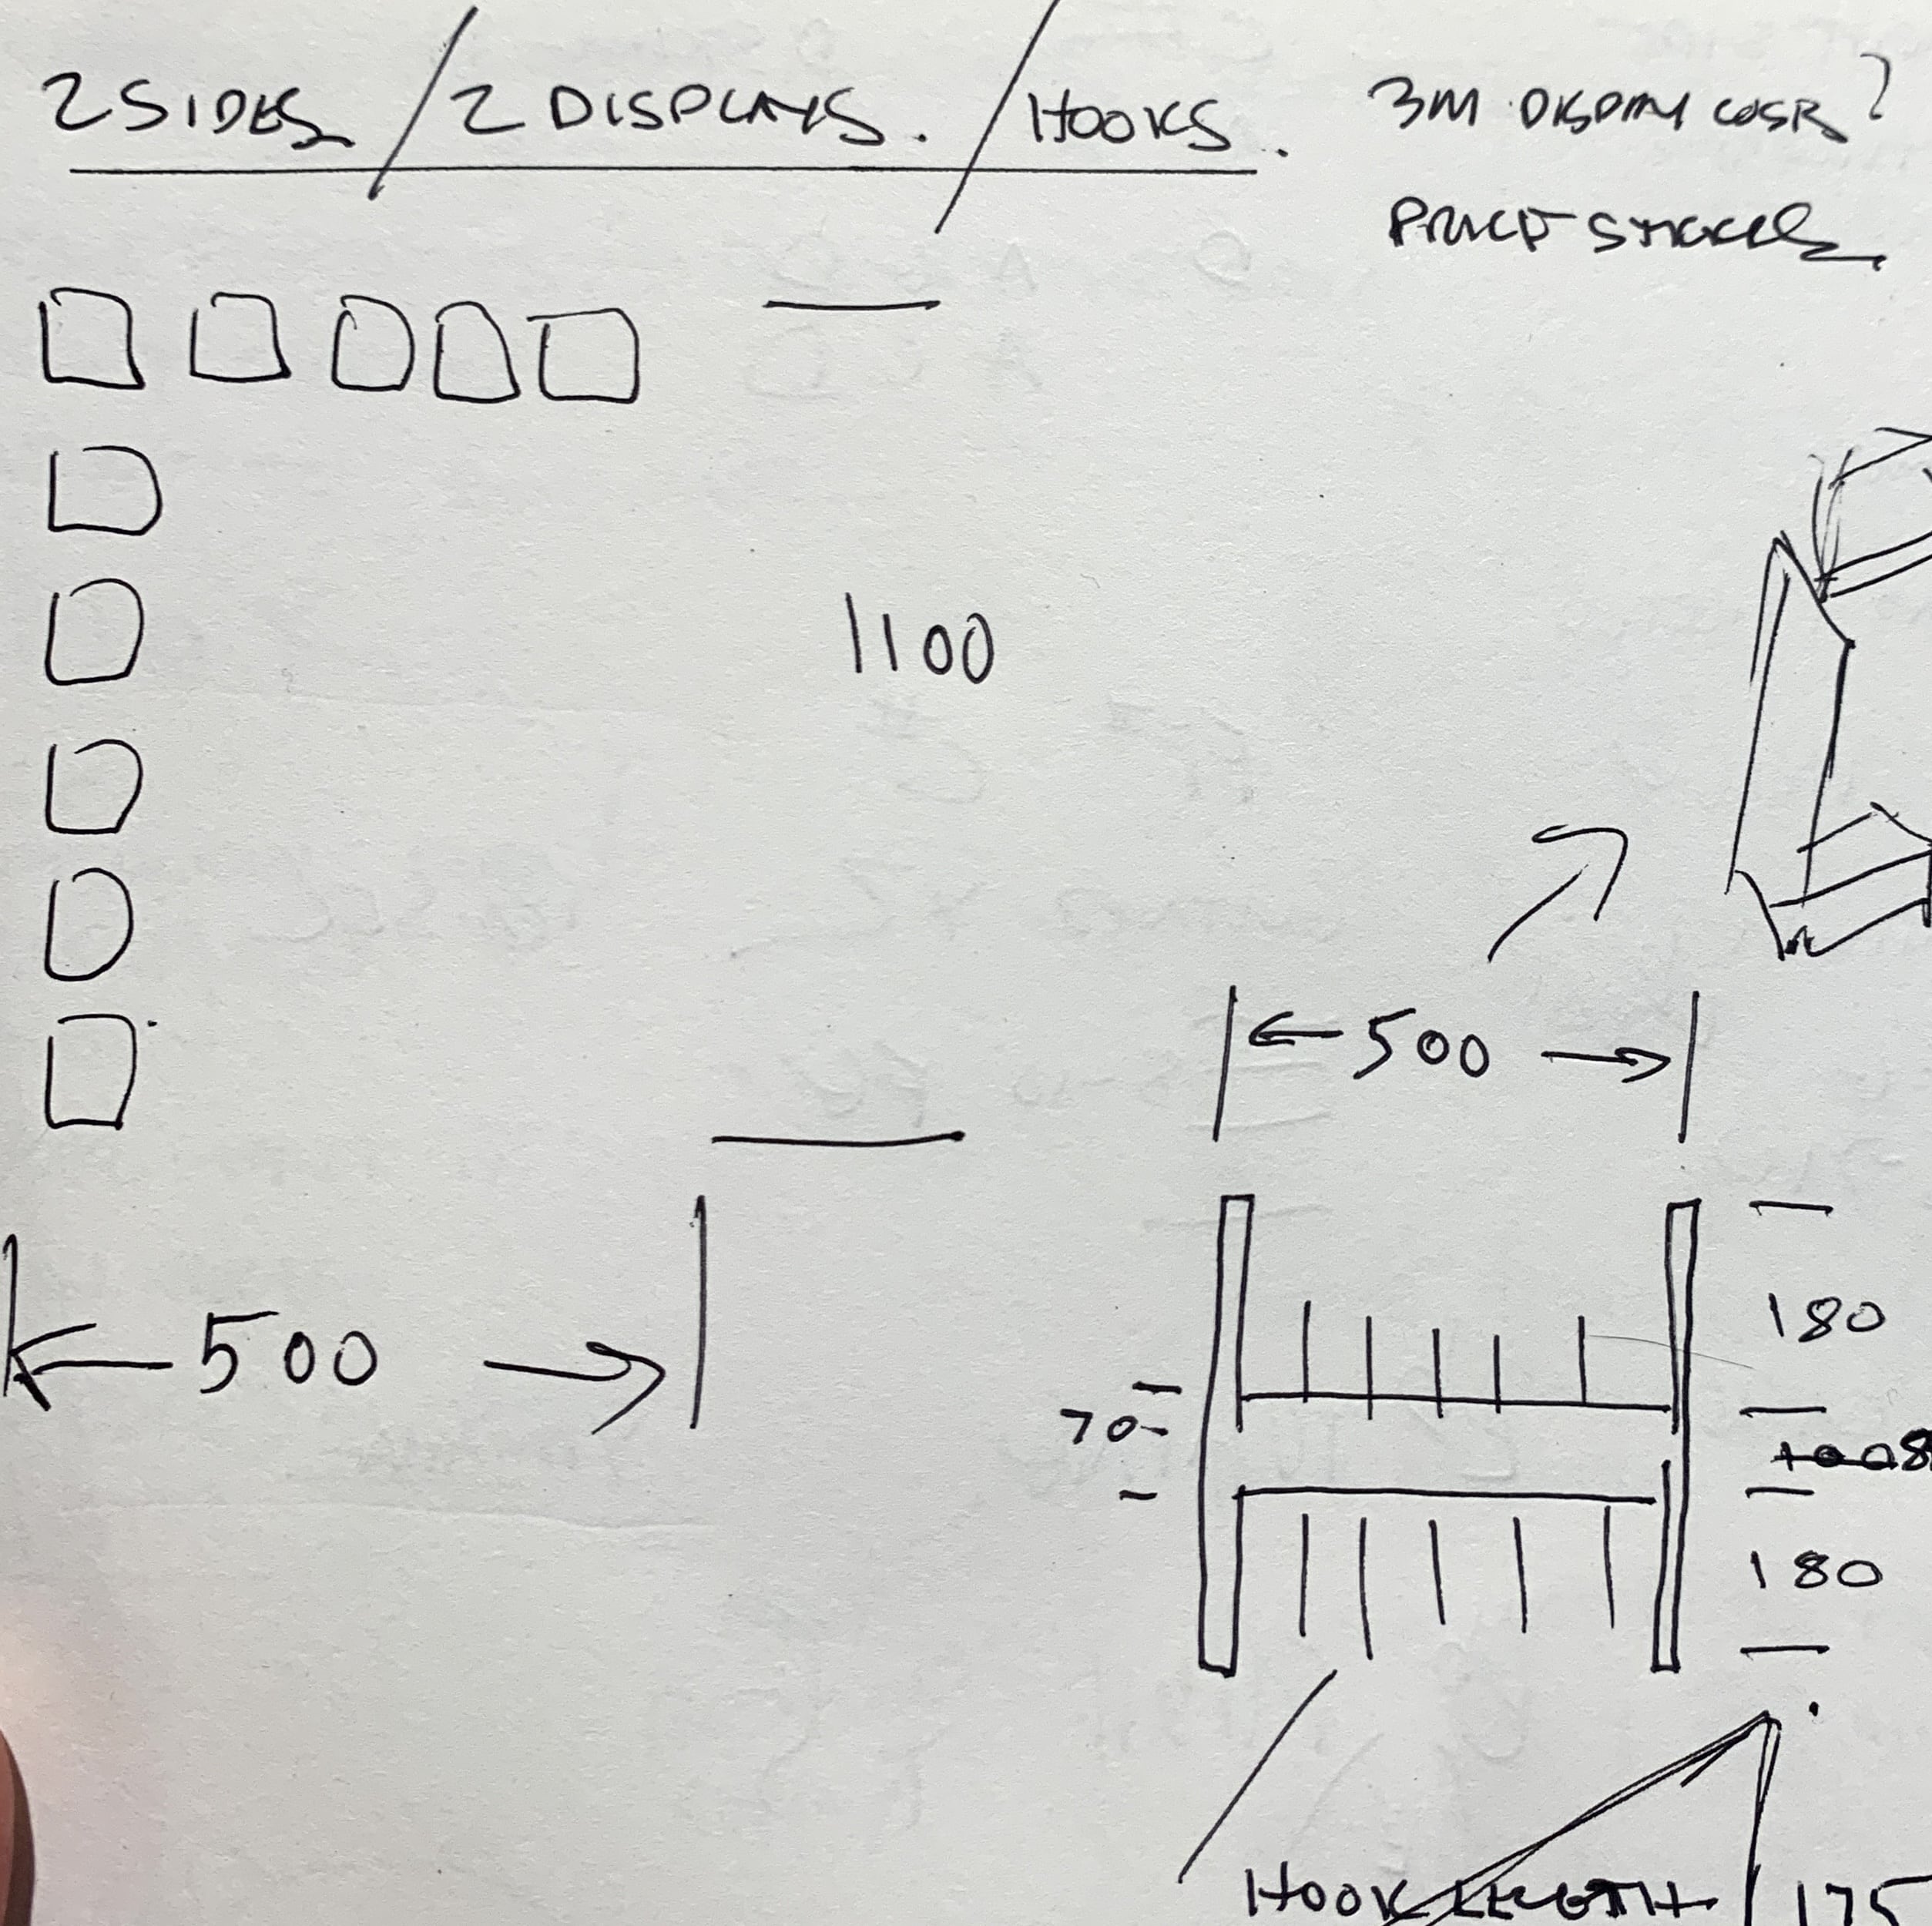 2 SIDES / 2 DISPLAYS. / HOOKS.
3M DISPLAY COSR?
PRICE STICKERS
1100
500
500
180
70
180
HOOK LENGTH 175